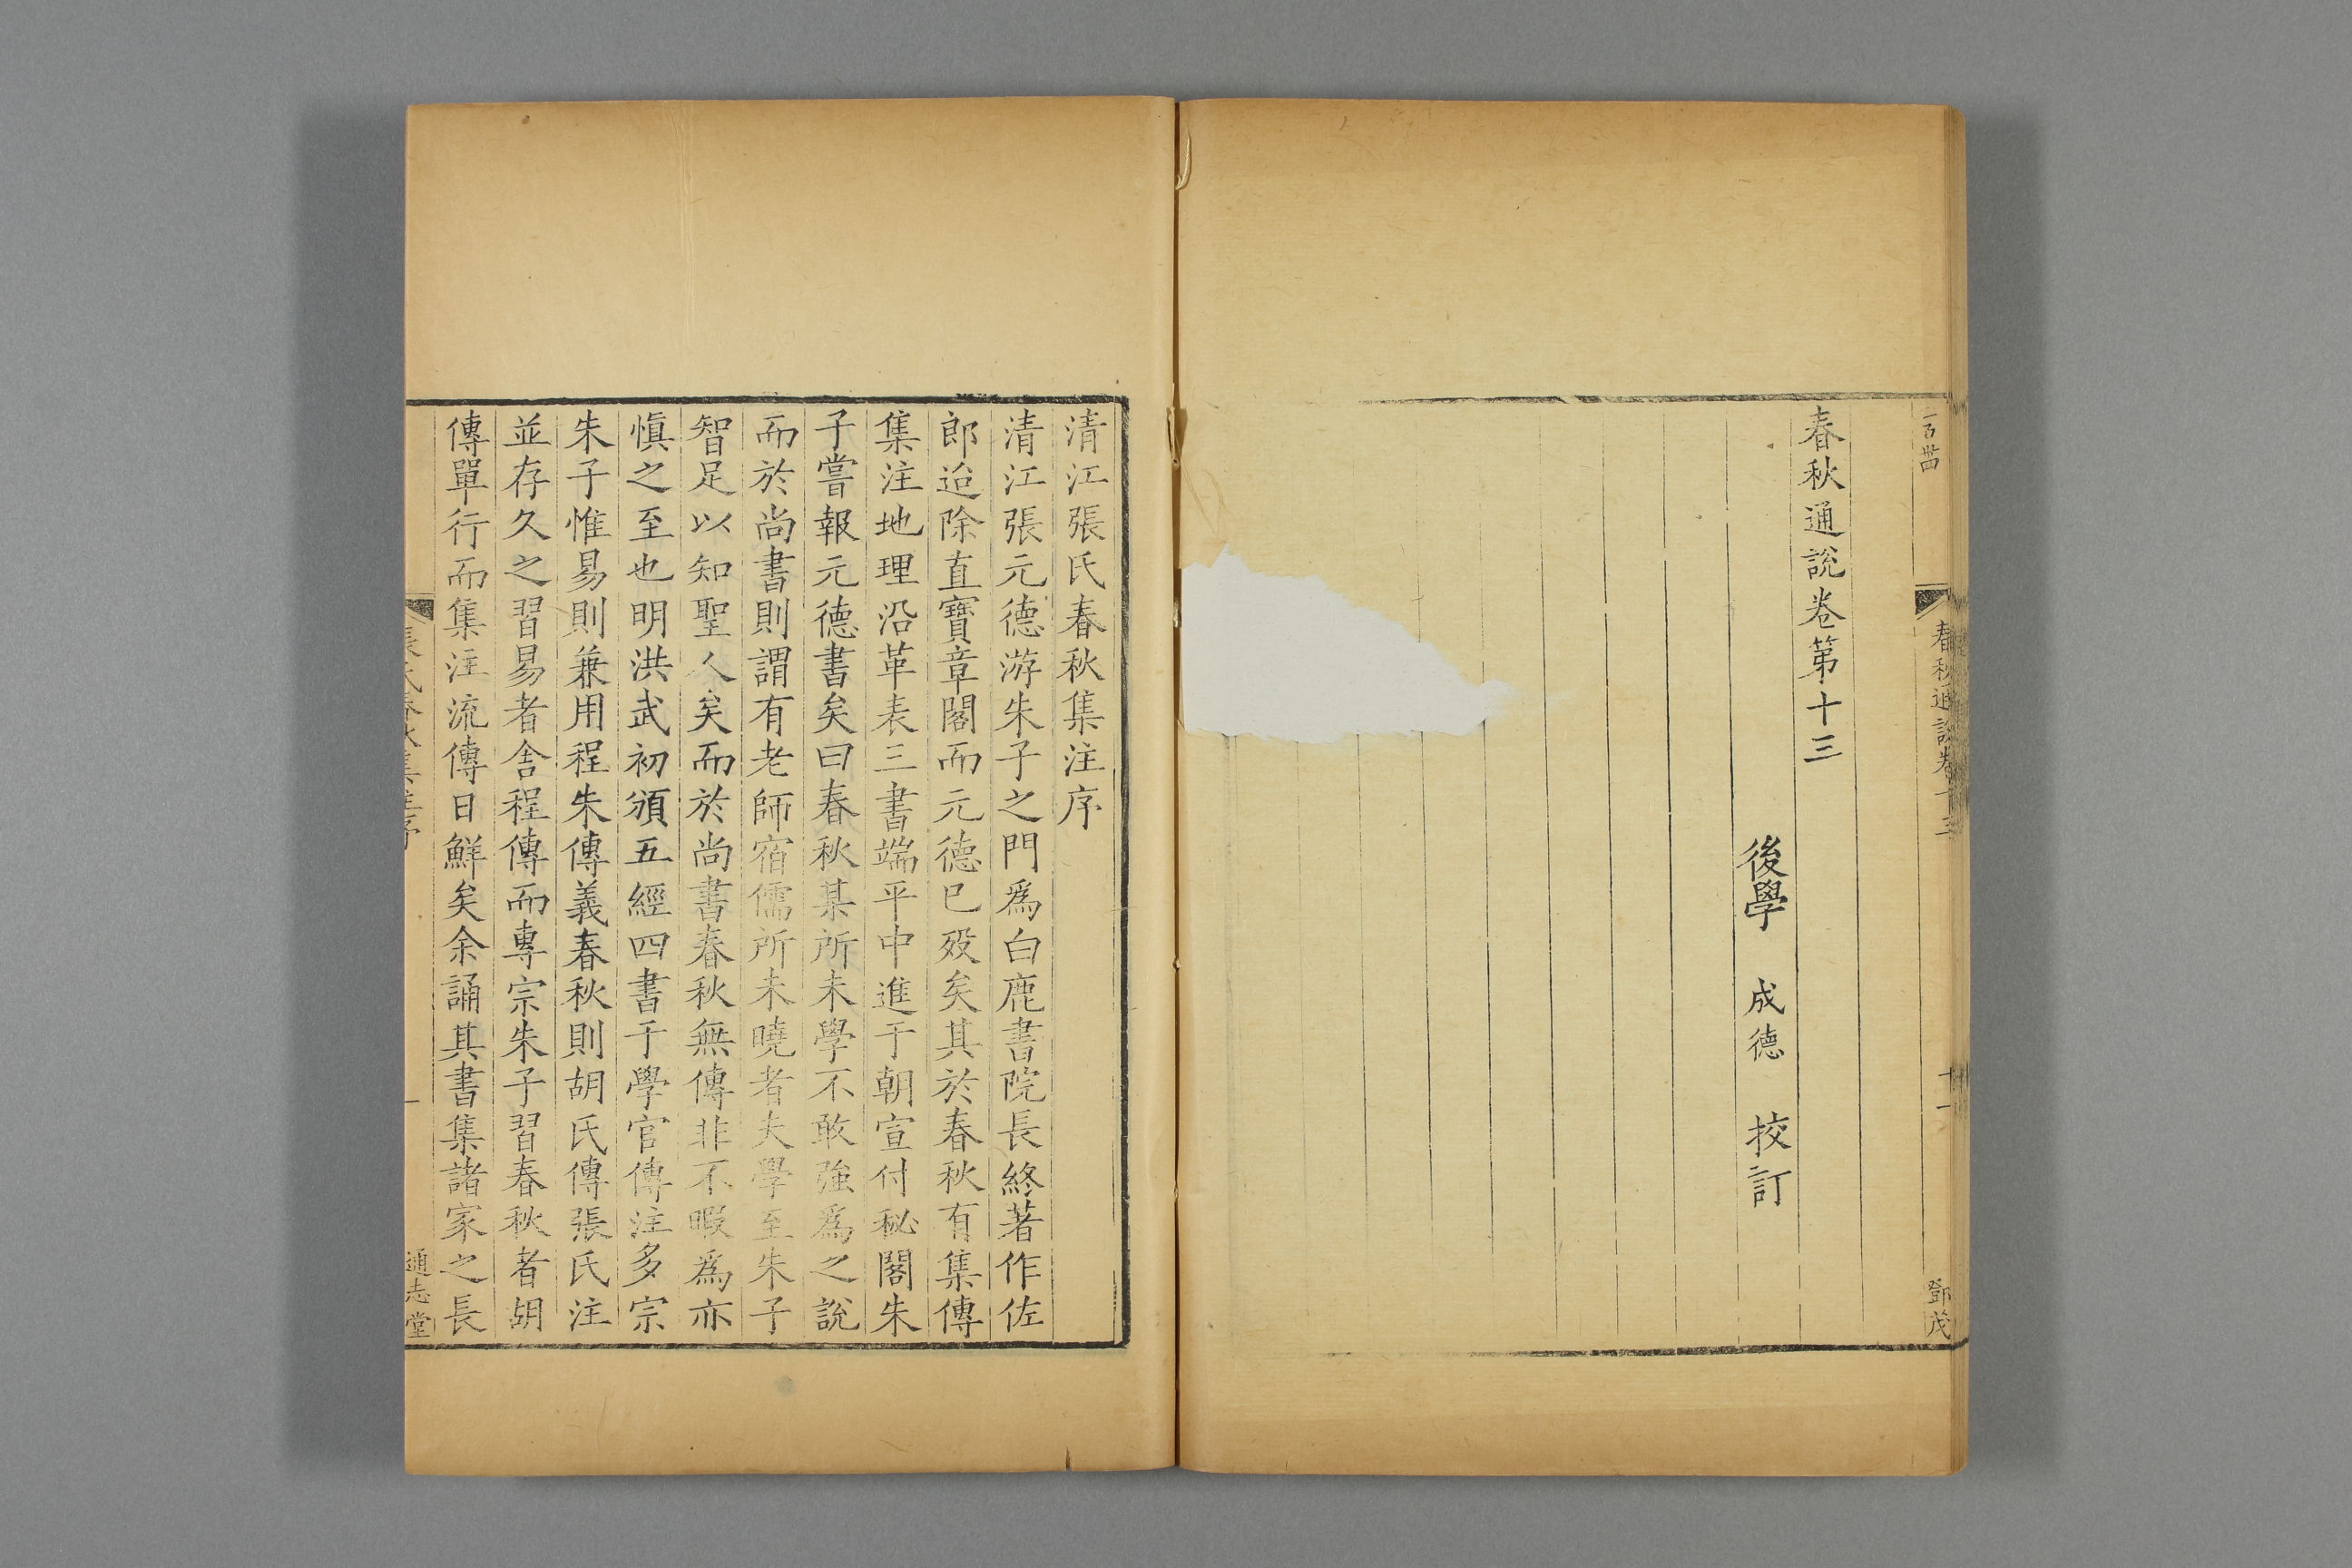 春秋通說卷第十三
後學 成德 校訂
春秋通說卷十三
十一
鄧茂
清江張氏春秋集注序
清江張元德游朱子之門爲白鹿書院長終著作佐
郎迨除直寶章閣而元德已歿矣其於春秋有集傳
集注地理沿革表三書端平中進于朝宣付秘閣朱
子嘗報元德書矣曰春秋某所未學不敢強爲之說
而於尚書則謂有老師宿儒所未曉者夫學至朱子
智足以知聖人矣而於尚書春秋無傳非不暇爲亦
慎之至也明洪武初頒五經四書于學官傳注多宗
朱子惟易則兼用程朱傳義春秋則胡氏傳張氏注
並存久之習易者舍程傳而專宗朱子習春秋者胡
傳單行而集注流傳日鮮矣余誦其書集諸家之長
張氏春秋集注序
一
通志堂